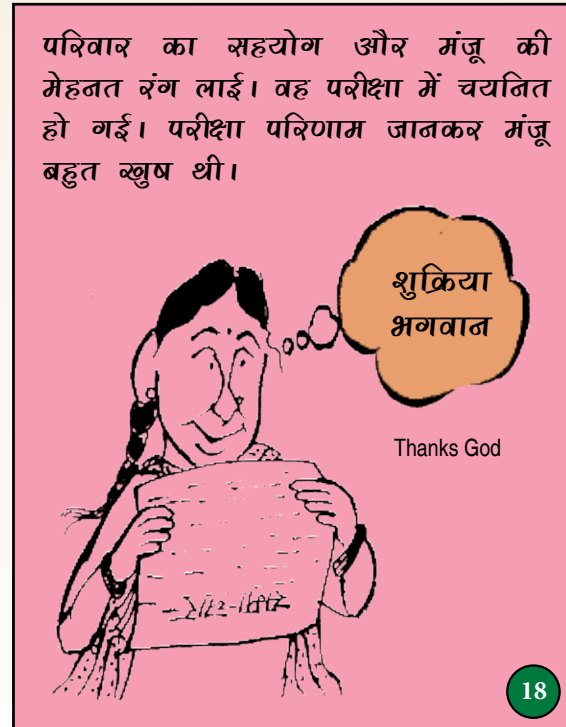 परिवार का सहयोग और मंजू की
मेहनत रंग लाई। वह परीक्षा में चयनित
हो गई। परीक्षा परिणाम जानकर मंजू
बहुत खुष थी।
शुक्रिया
भगवान
Thanks God
18